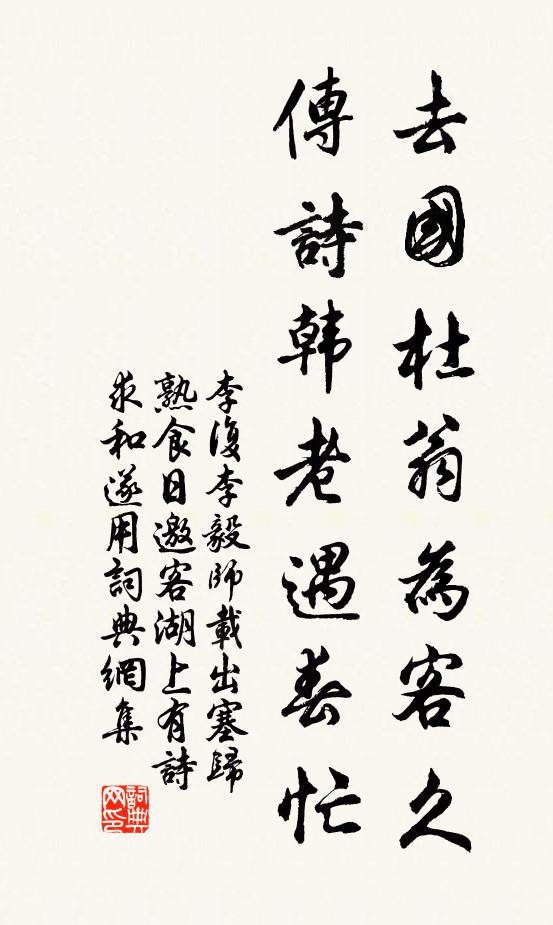 去國杜翁為客久
傳詩韩老遇春忙
李復李毅師載出塞歸
熟食日邀客湖上有詩
求和遂用詞典網集
詞典
网印